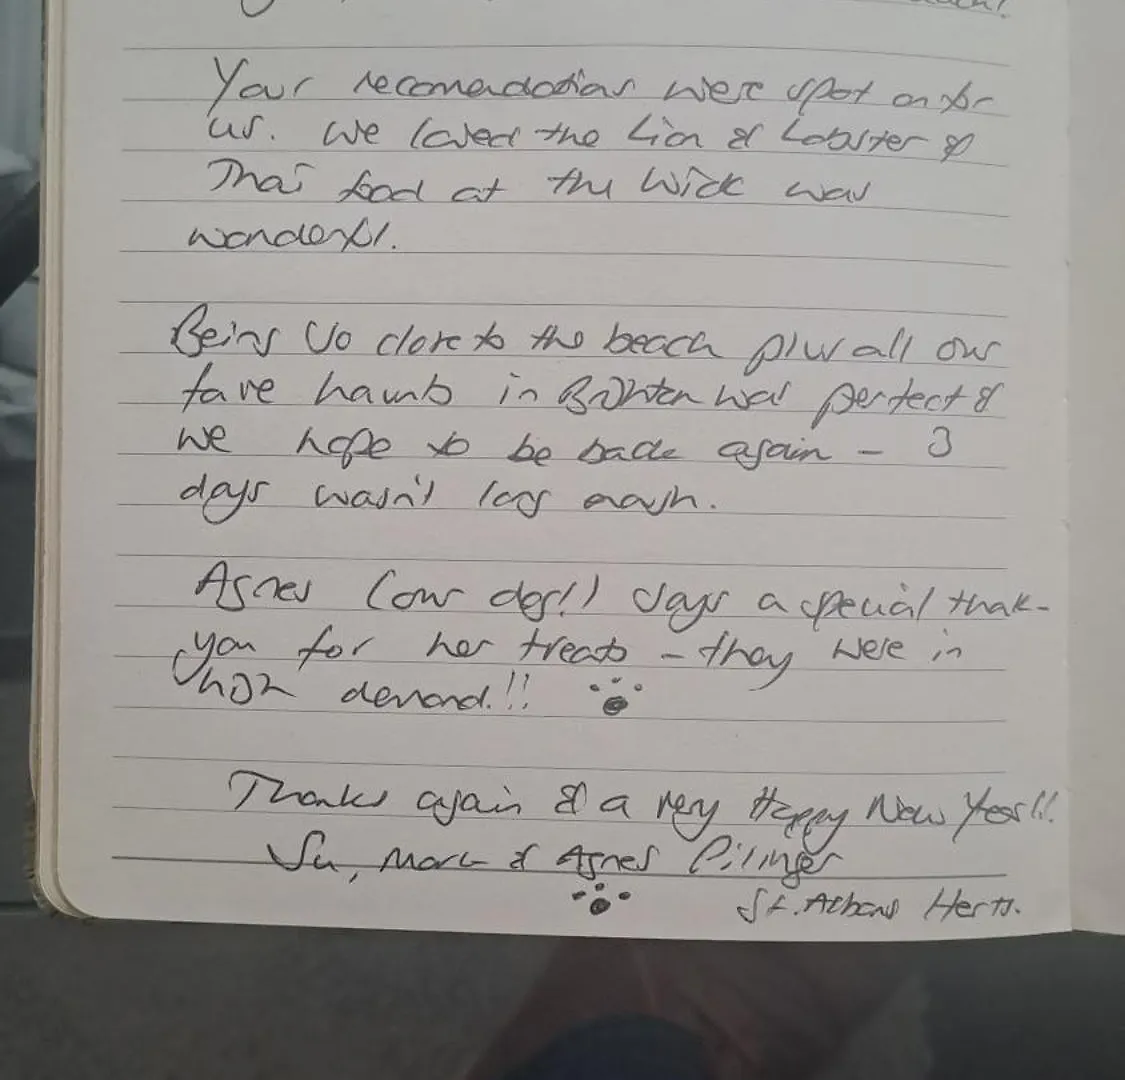 Your recomendations were spot on for
us. We loved the Lion & Lobster &
Thai food at the Wick was
wonderful.
Being so close to the beach plus all our
fave haunts in Brighton was perfect &
we hope to be back again - 3
days wasn't long enough.
Agnes (our dog!!) says a special thank-
you for her treats - they were in
high demand!!
Thanks again & a very Happy New Year!!
Su, Mark & Agnes
St. Albans Herts.